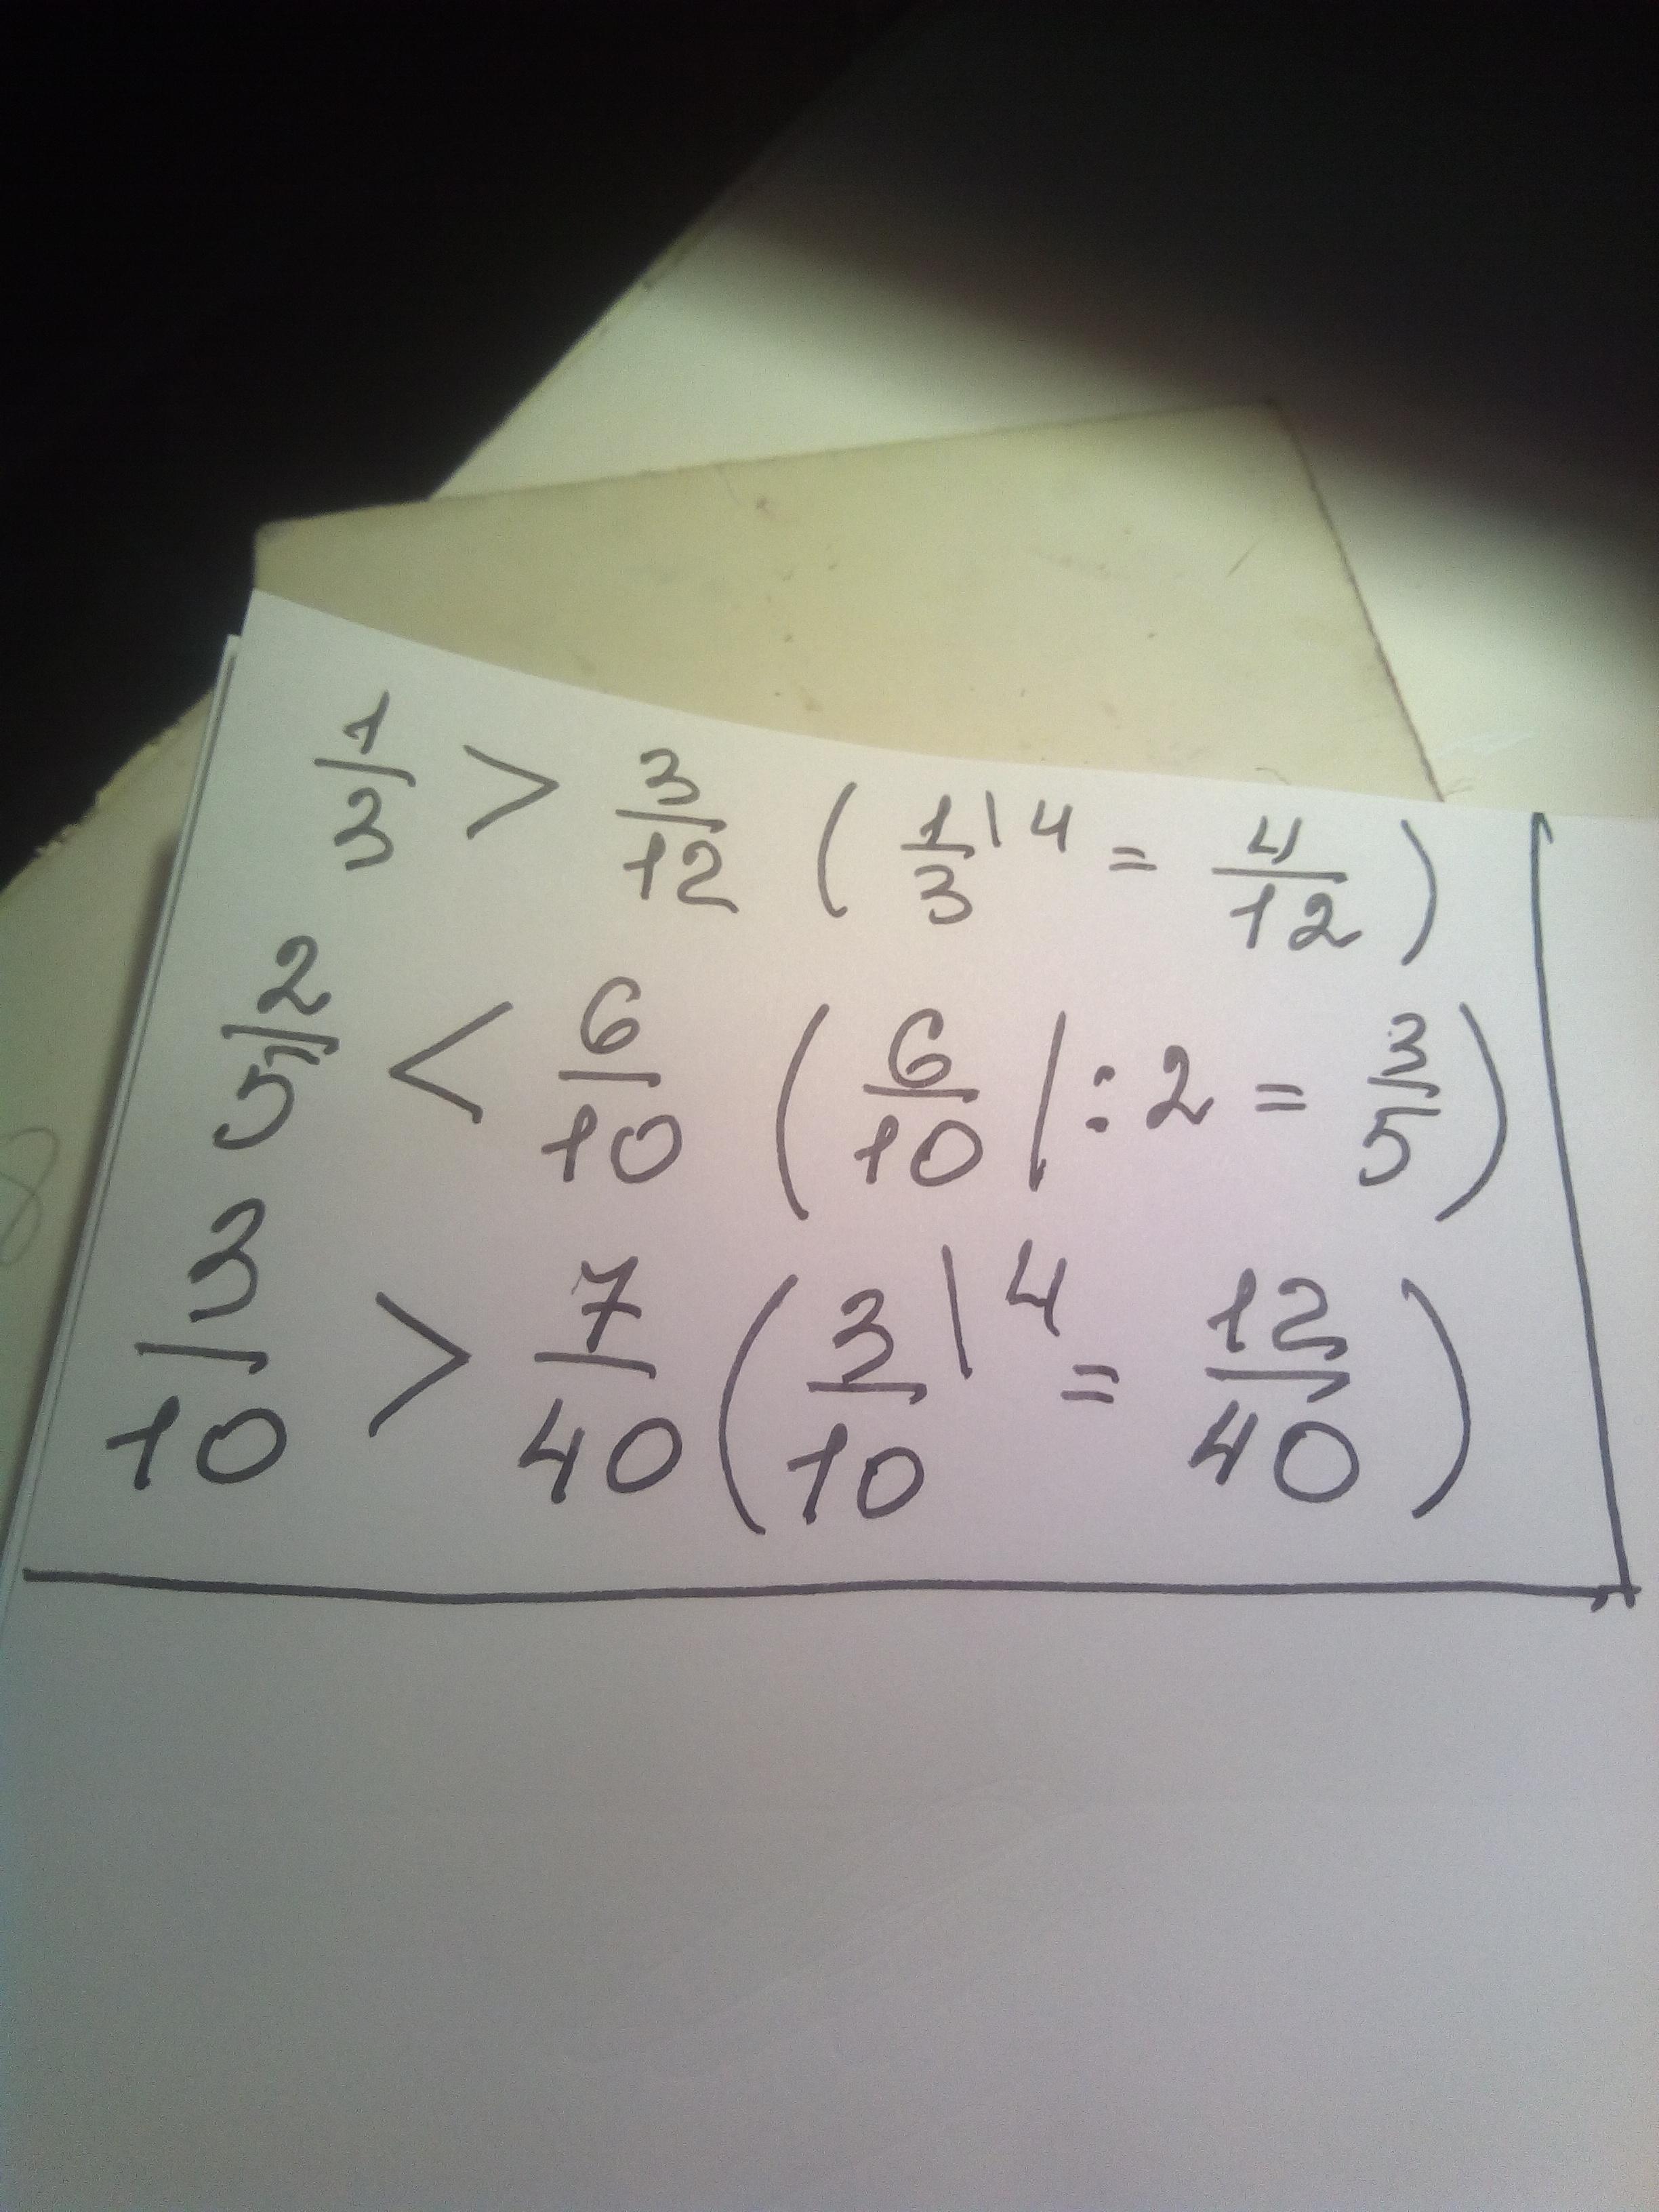 1/3 > 3/12 ( 1/3 |4 = 4/12 )
2/5 < 6/10 ( 6/10 | : 2 = 3/5 )
3/10 > 7/40 ( 3/10 |4 = 12/40 )